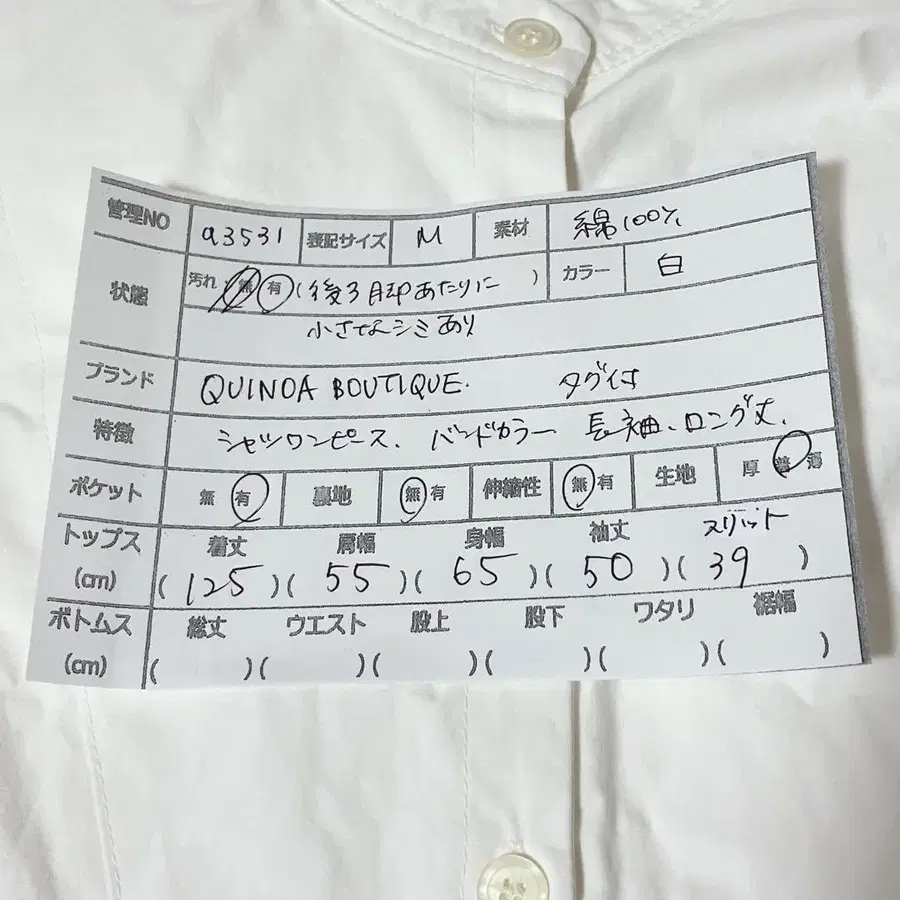 管理NO a3531 表記サイズ M 素材 綿100%
状態 汚れ 無 有 (後ろ脚あたりに) カラー 白
小さなシミあり
ブランド QUINOA BOUTIQUE. タグ付
特徴 シャツワンピース、バンドカラー 長袖、ロング丈、
ポケット 無 有 裏地 無 有 伸縮性 無 有 生地 厚 普 薄
トップス 着丈 肩幅 身幅 袖丈 スリット
(cm) (125)(55)(65)(50)(39)
ボトムス 総丈 ウエスト 股上 股下 ワタリ 裾幅
(cm) ( )( )( )( )( )( )